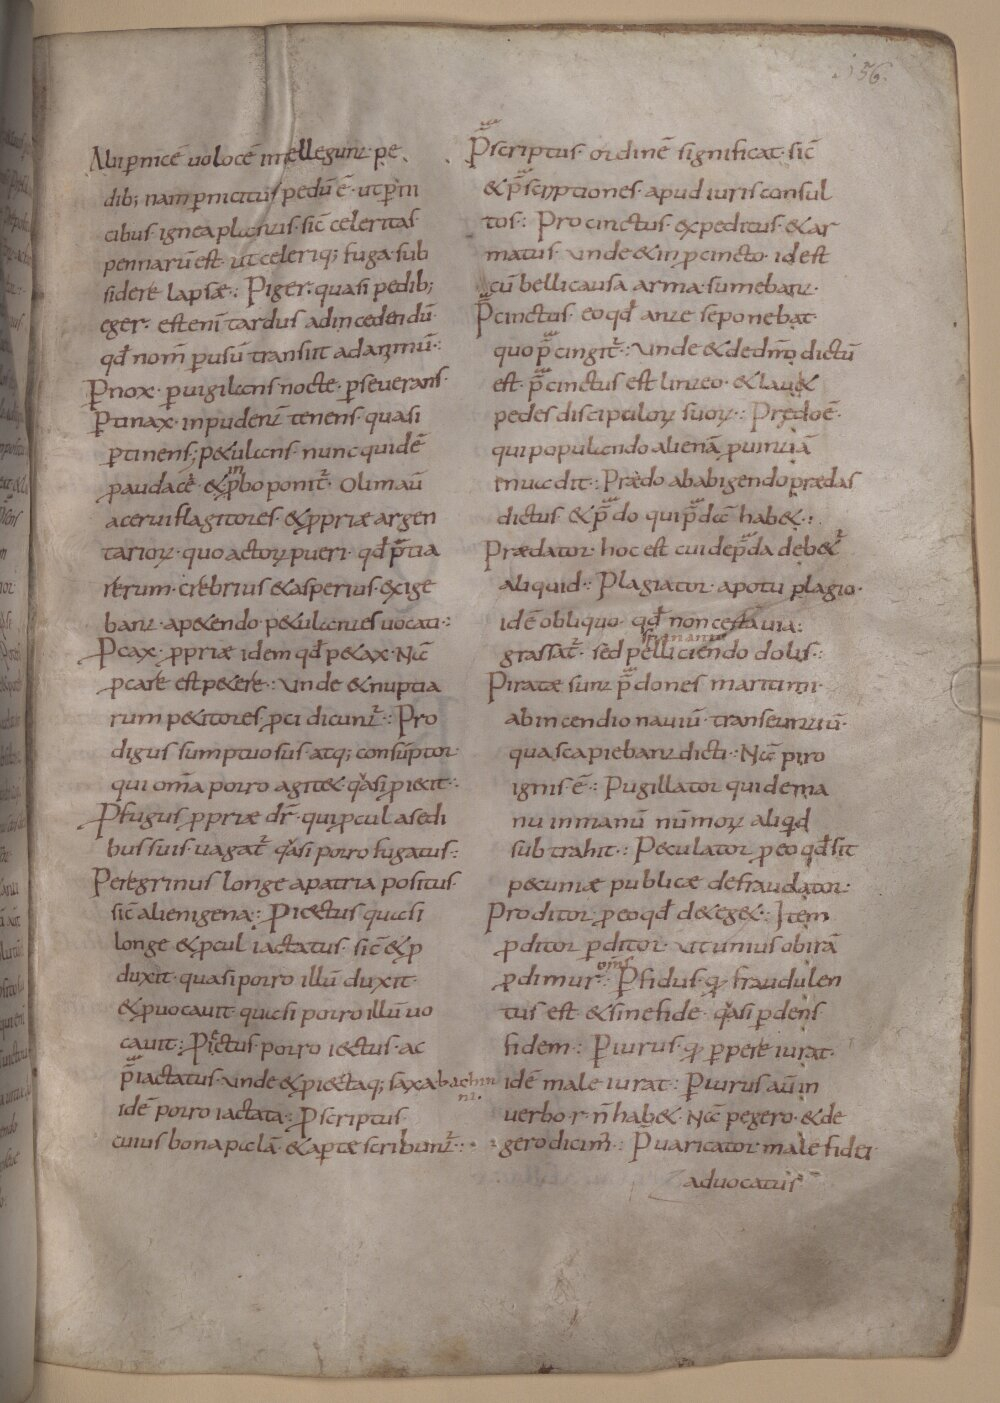 156.
Alii pnicē uolocē intellegunt· pe
dib; nam pnicitus pedū ē· ut pni
cibus· ignea plantis· sic̄ celeritas
pennarū est· ut celeriq; fuga sub
sidere lapsæ·: Piger· quasi pedib;
eger· est enī tardus ad incedendū·
qđ nom̄ p usū transiit ad animū·:
Pnox· puigilans nocte· pseuerans·
Ptinax· inpudent̄ tenens· quasi
ptinens; petulans· nunc quidē
p audacē· & pbo ponit᷑· Olim aū
acerui flagitores· & ppriæ argen
tarioꝝ· quo actoꝝ pueri· qđ p̄tia
rerum· crebrius & asperius· exige
bant· apetendo· petulantes uocati·:
Pcax· ppriæ idem qđ petax· Nā
pcare est petere·: Vnde & nuptia
rum petitores· pci dicunt᷑·: Pro
digus sumptuosus· atq; consūptor·
qui om̄a porro agit et· qͣsi piecit·:
Pfugus ppriæ dr̄· qui pcul a sedi
bus suis· uagat᷑· qͣsi porro fugatus·:
Peregrinus longe apatria positus·
sic̄ alienigena·: Piectus quasi
longe & pcul iactatus· sic̄ & p
duxit· quasi porro illū duxit·
& puocauit· quasi porro illū uo
cauit·: Piectus· porro iectus· ac
p̄iactatus· unde & piectaq; saxa
idē porro iactata·: Pscriptus
cuius bona palā· & apte scribunt᷑·:
P̄scriptus· ordinē significat· sic̄
& p̄scriptiones· apud iuris consul
tos·: Procinctus· expeditus· & ar
matus· unde & in pcincto· id est
cū belli causa arma· sumebant·
P̄cinctus· eo qđ ante se ponebat·
quo p̄cingit᷑·: Vnde & de dn̄o dictū
est· p̄cinctus est linteo· & lauit
pedes discipuloꝝ suoꝝ·: Prędo ē·
qui populando alienā puintiā
inuadit·: Prædo ab abigendo prædas
dictus· & p̄do qui p̄da habet·:
Prædator· hoc est cui de p̄da debet᷑
aliquid·: Plagiator· apotu plagio·
idē obliquo· qđ non certa uia·
grassat᷑· sed pelliciendo dolis·:
Piratæ sunt p̄dones maritimi·
ab incendio nauiū· transeuntiū·
quas capiebant dicti·: Nā piro
ignis ē·: Pugillator qui de ma
nu in manū nūmoꝝ aliqđ
subtrahit·: Peculator p eo qđ sit
pecuniæ publicæ defraudator·
Proditor p eo qđ detegit·: Item
pditor pditor· ut unius ob irā
pdimur·: Pfidus· q fraudulen
tus est & sine fide· qͣsi pdens
fidem·: Piurus· q p pere iurat·
idē male iurat·: Piurus aū in
uerbo· r· n̄ habet· Nā pegero· & de
gero dicim᷑·: P̄uaricator male fidei
aduocatus